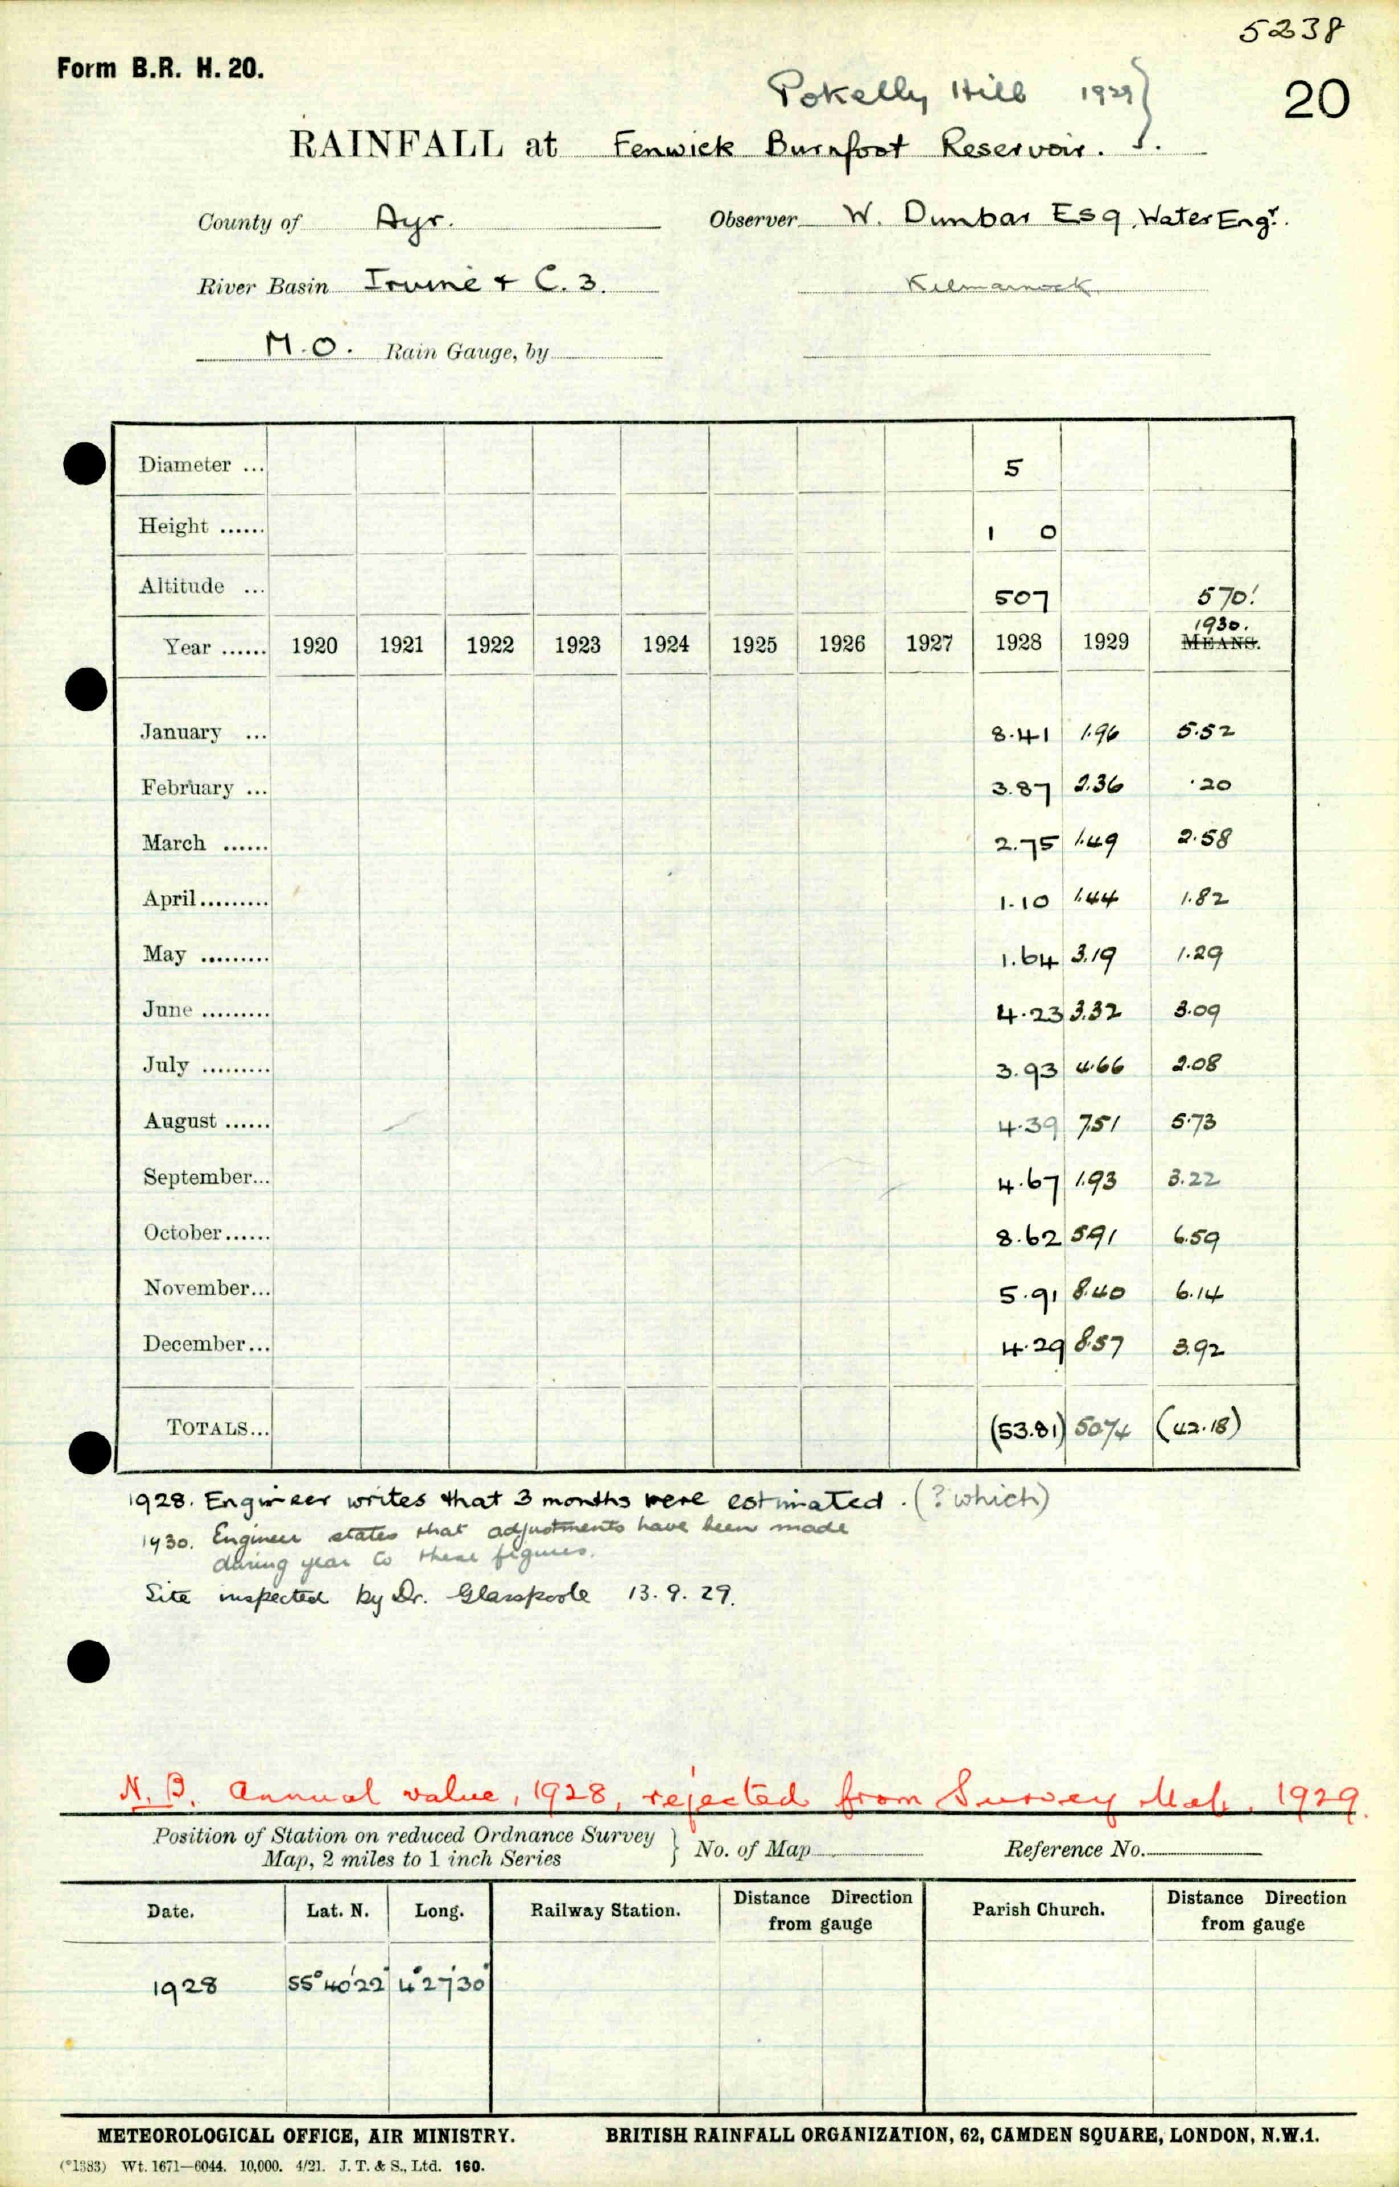 5238
Form B.R. H. 20.
20
Pokelly Hill 1929 }
RAINFALL at Fenwick Burnfoot Reservoir.
County of Ayr. Observer W. Dunbar Esq, Water Engr.
River Basin Irvine & C. 3. Kilmarnock
M.O. Rain Gauge, by
Diameter ... 5
Height ...... 1 0
Altitude ... 507 570'
Year ...... 1920 1921 1922 1923 1924 1925 1926 1927 1928 1929 1930. MEANS.
January ... 8.41 1.96 5.52
February ... 3.87 2.36 .20
March ...... 2.75 1.49 2.58
April ......... 1.10 1.44 1.82
May ......... 1.64 3.19 1.29
June ......... 4.23 3.32 3.09
July ......... 3.93 4.66 2.08
August ...... 4.39 7.51 5.73
September... 4.67 1.93 3.22
October ...... 8.62 5.91 6.59
November... 5.91 8.40 6.14
December... 4.29 8.57 3.92
TOTALS... (53.81) 50.74 (42.18)
1928. Engineer writes that 3 months were estimated. (? which)
1930. Engineer states that adjustments have been made
during year to these figures.
Site inspected by Dr. Glasspoole 13.9.29.
N.B. Annual value, 1928, rejected from Survey Map. 1929.
Position of Station on reduced Ordnance Survey
Map, 2 miles to 1 inch Series } No. of Map Reference No.
Date. Lat. N. Long. Railway Station. Distance Direction from gauge Parish Church. Distance Direction from gauge
1928 55° 40' 22" 4° 27' 30"
METEOROLOGICAL OFFICE, AIR MINISTRY. BRITISH RAINFALL ORGANIZATION, 62, CAMDEN SQUARE, LONDON, N.W.1.
(*1383) Wt. 1671—6044. 10,000. 4/21. J. T. & S., Ltd. 160.